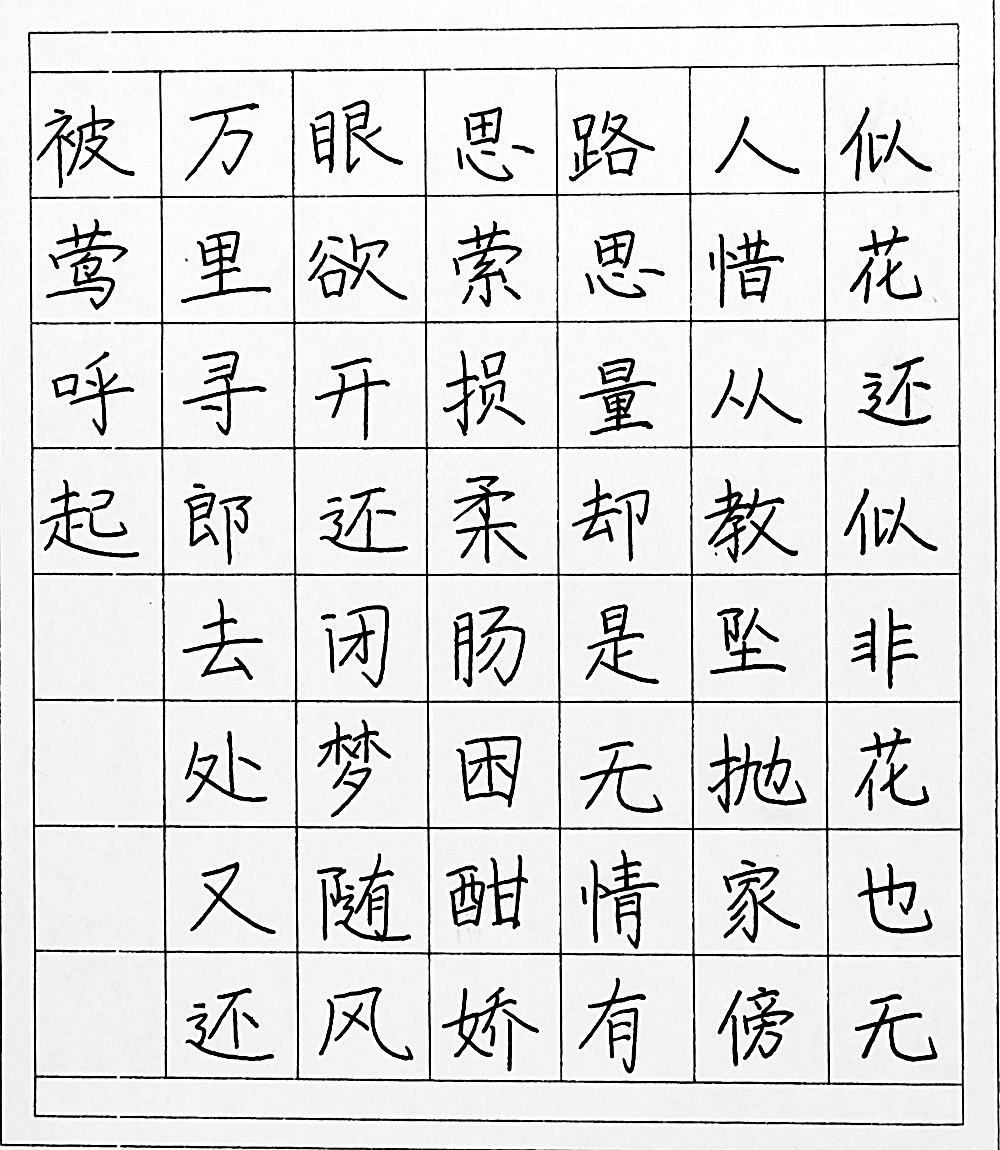 似花还似非花也无
人惜从教坠抛家傍
路思量却是无情有
思萦损柔肠困酣娇
眼欲开还闭梦随风
万里寻郎去处又还
被莺呼起